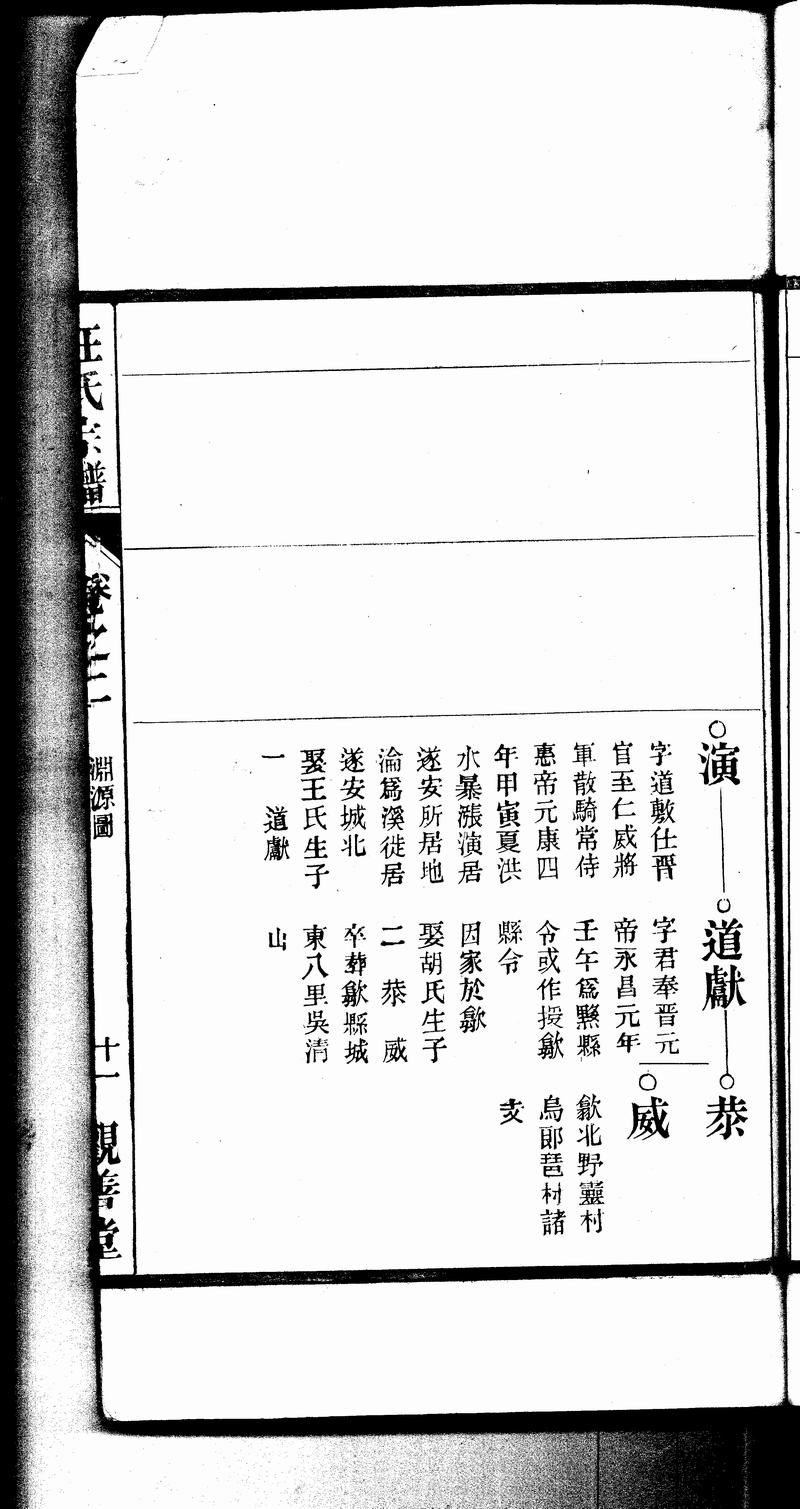 演
字道敷仕晉
官至仁威將
軍散騎常侍
惠帝元康四
年甲寅夏洪
水暴漲演居
遂安所居地
淪爲溪徙居
遂安城北
娶王氏生子
一　道獻
道獻
字君奉晉元
帝永昌元年
壬午爲黟縣
令或作授歙
縣令
因家於歙
娶胡氏生子
二　恭　威
卒葬歙縣城
東八里吳清
山
恭
威
歙北野靈村
烏郎琶村諸
支
汪氏宗譜
卷之二
淵源圖
十一
善堂